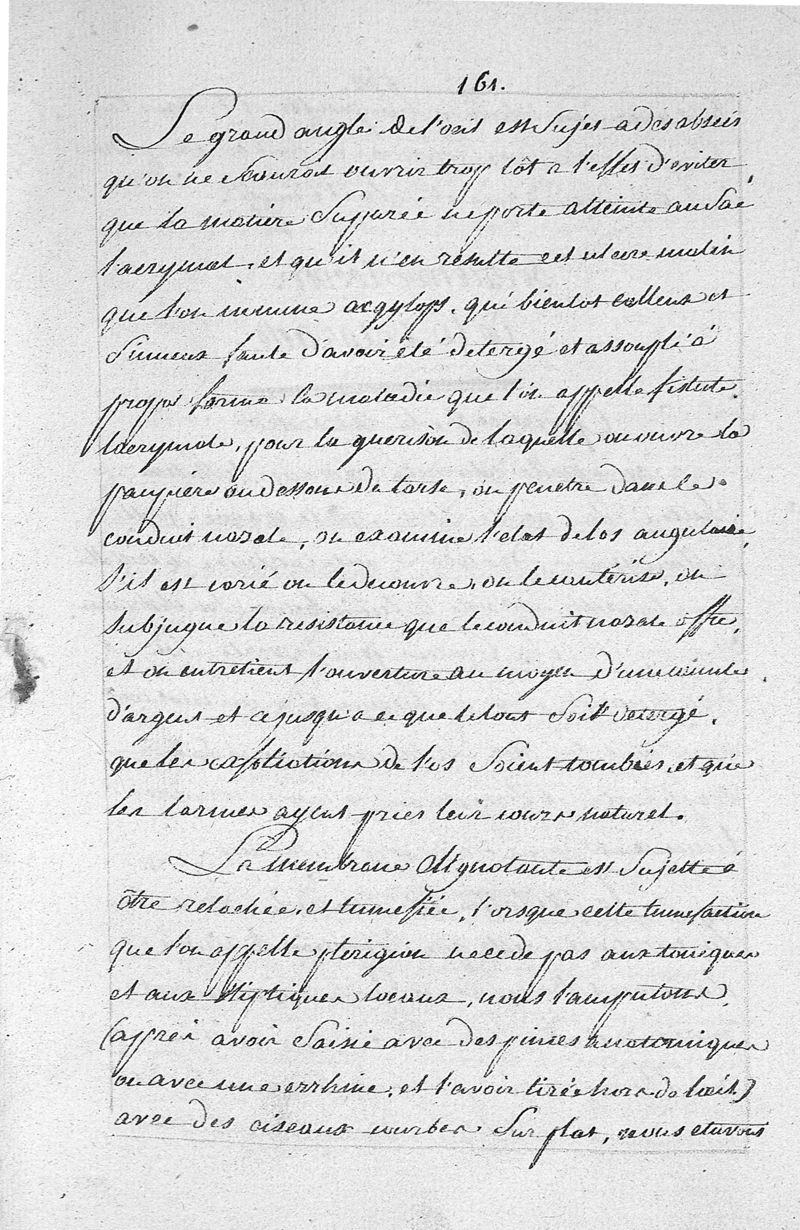 161.
Le grand angle de l'oeil est sujet a des abseis
qu'on ne scauroit ouvrir trop tôt a l'effet d'eviter
que la matiere suppurée ne porte atteinte au sac
lacrymal, et qu'il n'en resulte cet ulcere malin
que l'on nomme œgylops, qui bientot calleux et
sinueux faute d'avoir été detergé et assoupli à
propos forme la maladie que l'on appelle fistule
lacrymale, pour la guerison de laquelle on ouvre la
paupiere au dessous de tarse, on penetre dans le
conduit nazale, on examine l'etat de los angulaire
s'il est carié on le decouvre, on le cautérise, on
subjugue la resistance que le conduit nazale offre,
et on entretient l'ouverture au moyen d'une canule
d'argent et ce jusqu'a ce que le tout soit detergé,
que les exfoliations de l'os soient tombées, et que
les larmes ayent pries leur cours naturel.
La membrane clignotante est sujette à
être relachée, et tumefiée, lorsque cette tumefaction
que l'on appelle pterigion ne cede pas aux toniques
et aux stiptiques locaux, nous l'amputons,
(apprés avoir saisie avec des pinces anatomiques
ou avec une errhine, et l'avoir tirée hors de l'œil)
avec des ciseaux courbes sur plat, nous etuvons